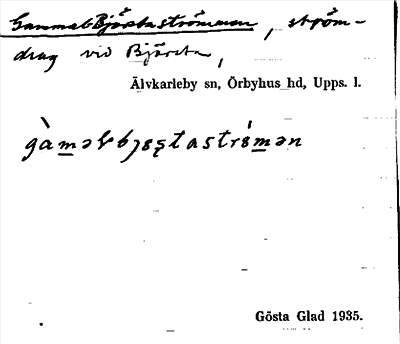 Gammal-Björstaströmmen, ström-
drag vid Björsta,
Älvkarleby sn, Örbyhus hd, Upps. l.
gàmalbjɛstastrǿmən
Gösta Glad 1935.